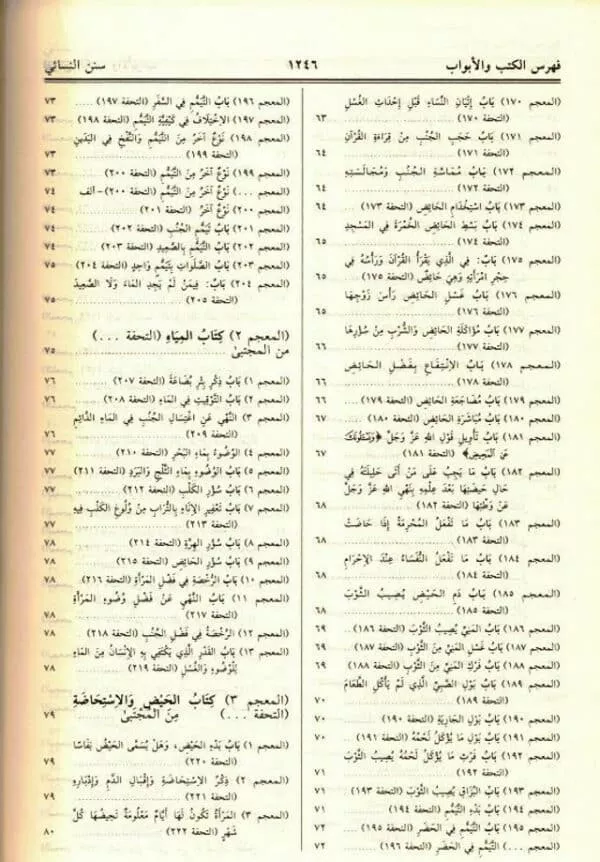 فهرس الكتب والأبواب ١٢٤٦ سنن النسائي
(المعجم ١٧٠) بَابُ إِتْيَانِ النِّسَاءِ قَبْلَ إِحْدَاثِ الْغُسْلِ
(التحفة ١٧٠) ٦٣
(المعجم ١٧١) بَابُ حَجْبِ الْجُنُبِ مِنْ قِرَاءَةِ الْقُرْآنِ
(التحفة ١٧١) ٦٤
(المعجم ١٧٢) بَابُ مُمَاسَّةِ الْجُنُبِ وَمُجَالَسَتِهِ
(التحفة ١٧٢) ٦٤
(المعجم ١٧٣) بَابُ اسْتِخْدَامِ الْحَائِضِ (التحفة ١٧٣) ٦٤
(المعجم ١٧٤) بَابُ بَسْطِ الْحَائِضِ الْخُمْرَةَ فِي الْمَسْجِدِ
(التحفة ١٧٤) ٦٥
(المعجم ١٧٥) بَابٌ: فِي الَّذِي يَقْرَأُ الْقُرْآنَ وَرَأْسُهُ فِي
حِجْرِ امْرَأَتِهِ وَهِيَ حَائِضٌ (التحفة ١٧٥) ٦٥
(المعجم ١٧٦) بَابُ غَسْلِ الْحَائِضِ رَأْسَ زَوْجِهَا
(التحفة ١٧٦) ٦٥
(المعجم ١٧٧) بَابُ مُؤَاكَلَةِ الْحَائِضِ وَالشُّرْبِ مِنْ سُؤْرِهَا
(التحفة ١٧٧) ٦٦
(المعجم ١٧٨) بَابُ الِانْتِفَاعِ بِفَضْلِ الْحَائِضِ
(التحفة ١٧٨) ٦٦
(المعجم ١٧٩) بَابُ مُضَاجَعَةِ الْحَائِضِ (التحفة ١٧٩) ٦٦
(المعجم ١٨٠) بَابُ مُبَاشَرَةِ الْحَائِضِ (التحفة ١٨٠) ٦٧
(المعجم ١٨١) بَابُ تَأْوِيلِ قَوْلِ اللهِ عَزَّ وَجَلَّ ﴿وَيَسْئَلُونَكَ
عَنِ الْمَحِيضِ﴾ (التحفة ١٨١) ٦٧
(المعجم ١٨٢) بَابُ مَا يَجِبُ عَلَى مَنْ أَتَى حَلِيلَتَهُ فِي
حَالِ حَيْضَتِهَا بَعْدَ عِلْمِهِ بِنَهْيِ اللهِ عَزَّ وَجَلَّ عَنْ
وَطْئِهَا (التحفة ١٨٢) ٦٨
(المعجم ١٨٣) بَابُ مَا تَفْعَلُ الْمُحْرِمَةُ إِذَا حَاضَتْ
(التحفة ١٨٣) ٦٨
(المعجم ١٨٤) بَابُ مَا تَفْعَلُ النُّفَسَاءُ عِنْدَ الْإِحْرَامِ
(التحفة ١٨٤) ٦٨
(المعجم ١٨٥) بَابُ دَمِ الْحَيْضِ يُصِيبُ الثَّوْبَ
(التحفة ١٨٥) ٦٨
(المعجم ١٨٦) بَابُ الْمَنِيِّ يُصِيبُ الثَّوْبَ (التحفة ١٨٦) ٦٩
(المعجم ١٨٧) بَابُ غَسْلِ الْمَنِيِّ مِنَ الثَّوْبِ (التحفة ١٨٧) ٦٩
(المعجم ١٨٨) بَابُ فَرْكِ الْمَنِيِّ مِنَ الثَّوْبِ (التحفة ١٨٨) ٦٩
(المعجم ١٨٩) بَابُ بَوْلِ الصَّبِيِّ الَّذِي لَمْ يَأْكُلِ الطَّعَامَ
(التحفة ١٨٩) ٧٠
(المعجم ١٩٠) بَابُ بَوْلِ الْجَارِيَةِ (التحفة ١٩٠) ٧٠
(المعجم ١٩١) بَابُ بَوْلِ مَا يُؤْكَلُ لَحْمُهُ (التحفة ١٩١) ٧٠
(المعجم ١٩٢) بَابُ فَرْثِ مَا يُؤْكَلُ لَحْمُهُ يُصِيبُ الثَّوْبَ
(التحفة ١٩٢) ٧١
(المعجم ١٩٣) بَابُ الْبُزَاقِ يُصِيبُ الثَّوْبَ (التحفة ١٩٣) ٧١
(المعجم ١٩٤) بَابُ بَدْءِ التَّيَمُّمِ (التحفة ١٩٤) ٧١
(المعجم ١٩٥) بَابُ التَّيَمُّمِ فِي الْحَضَرِ (التحفة ١٩٥) ٧٢
(المعجم ...) التَّيَمُّمُ فِي الْحَضَرِ (التحفة ١٩٦) ٧٢
(المعجم ١٩٦) بَابُ التَّيَمُّمِ فِي السَّفَرِ (التحفة ١٩٧) ٧٣
(المعجم ١٩٧) الِاخْتِلَافُ فِي كَيْفِيَّةِ التَّيَمُّمِ (التحفة ١٩٨) ٧٣
(المعجم ١٩٨) نَوْعٌ آخَرُ مِنَ التَّيَمُّمِ وَالنَّفْخِ فِي الْيَدَيْنِ
(التحفة ١٩٩) ٧٣
(المعجم ١٩٩) نَوْعٌ آخَرُ مِنَ التَّيَمُّمِ (التحفة ٢٠٠) ٧٣
(المعجم ...) نَوْعٌ آخَرُ مِنَ التَّيَمُّمِ (التحفة ٢٠٠) -ألف ٧٤
(المعجم ٢٠٠) نَوْعٌ آخَرُ (التحفة ٢٠١) ٧٤
(المعجم ٢٠١) بَابُ تَيَمُّمِ الْجُنُبِ (التحفة ٢٠٢) ٧٤
(المعجم ٢٠٢) بَابُ التَّيَمُّمِ بِالصَّعِيدِ (التحفة ٢٠٣) ٧٤
(المعجم ٢٠٣) بَابُ الصَّلَوَاتِ بِتَيَمُّمٍ وَاحِدٍ (التحفة ٢٠٤) ٧٥
(المعجم ٢٠٤) بَابٌ: فِيمَنْ لَمْ يَجِدِ الْمَاءَ وَلَا الصَّعِيدَ
(التحفة ٢٠٥) ٧٥
(المعجم ٢) كِتَابُ الْمِيَاهِ (التحفة ...)
من المجتبىٰ ٧٥
(المعجم ١) بَابُ ذِكْرِ بِئْرِ بُضَاعَةَ (التحفة ٢٠٧) ٧٦
(المعجم ٢) بَابُ التَّوْقِيتِ فِي الْمَاءِ (التحفة ٢٠٨) ٧٦
(المعجم ٣) النَّهْيُ عَنِ اغْتِسَالِ الْجُنُبِ فِي الْمَاءِ الدَّائِمِ
(التحفة ٢٠٩) ٧٦
(المعجم ٤) الْوُضُوءُ بِمَاءِ الْبَحْرِ (التحفة ٢١٠) ٧٧
(المعجم ٥) بَابُ الْوُضُوءِ بِمَاءِ الثَّلْجِ وَالْبَرَدِ (التحفة ٢١١) ٧٧
(المعجم ٦) بَابُ سُؤْرِ الْكَلْبِ (التحفة ٢١٢) ٧٧
(المعجم ٧) بَابُ تَعْفِيرِ الْإِنَاءِ بِالتُّرَابِ مِنْ وُلُوغِ الْكَلْبِ فِيهِ
(التحفة ٢١٣) ٧٧
(المعجم ٨) بَابُ سُؤْرِ الْهِرَّةِ (التحفة ٢١٤) ٧٨
(المعجم ٩) بَابُ سُؤْرِ الْحَائِضِ (التحفة ٢١٥) ٧٨
(المعجم ١٠) بَابُ الرُّخْصَةِ فِي فَضْلِ الْمَرْأَةِ (التحفة ٢١٦) ٧٨
(المعجم ١١) بَابُ النَّهْيِ عَنْ فَضْلِ وُضُوءِ الْمَرْأَةِ
(التحفة ٢١٧) ٧٨
(المعجم ١٢) الرُّخْصَةُ فِي فَضْلِ الْجُنُبِ (التحفة ٢١٨) ٧٨
(المعجم ١٣) بَابُ الْقَدْرِ الَّذِي يَكْتَفِي بِهِ الْإِنْسَانُ مِنَ الْمَاءِ
لِلْوُضُوءِ وَالْغُسْلِ (التحفة ٢١٩) ٧٨
(المعجم ٣) كِتَابُ الْحَيْضِ وَالِاسْتِحَاضَةِ
(التحفة ...) مِنَ الْمُجْتَبىٰ ٧٩
(المعجم ١) بَابُ بَدْءِ الْحَيْضِ، وَهَلْ يُسَمَّى الْحَيْضُ نِفَاسًا
(التحفة ٢٢٠) ٧٩
(المعجم ٢) ذِكْرُ الِاسْتِحَاضَةِ وَإِقْبَالِ الدَّمِ وَإِدْبَارِهِ
(التحفة ٢٢١) ٧٩
(المعجم ٣) الْمَرْأَةُ تَكُونُ لَهَا أَيَّامٌ مَعْلُومَةٌ تَحِيضُهَا كُلَّ
شَهْرٍ (التحفة ٢٢٢) ٨٠